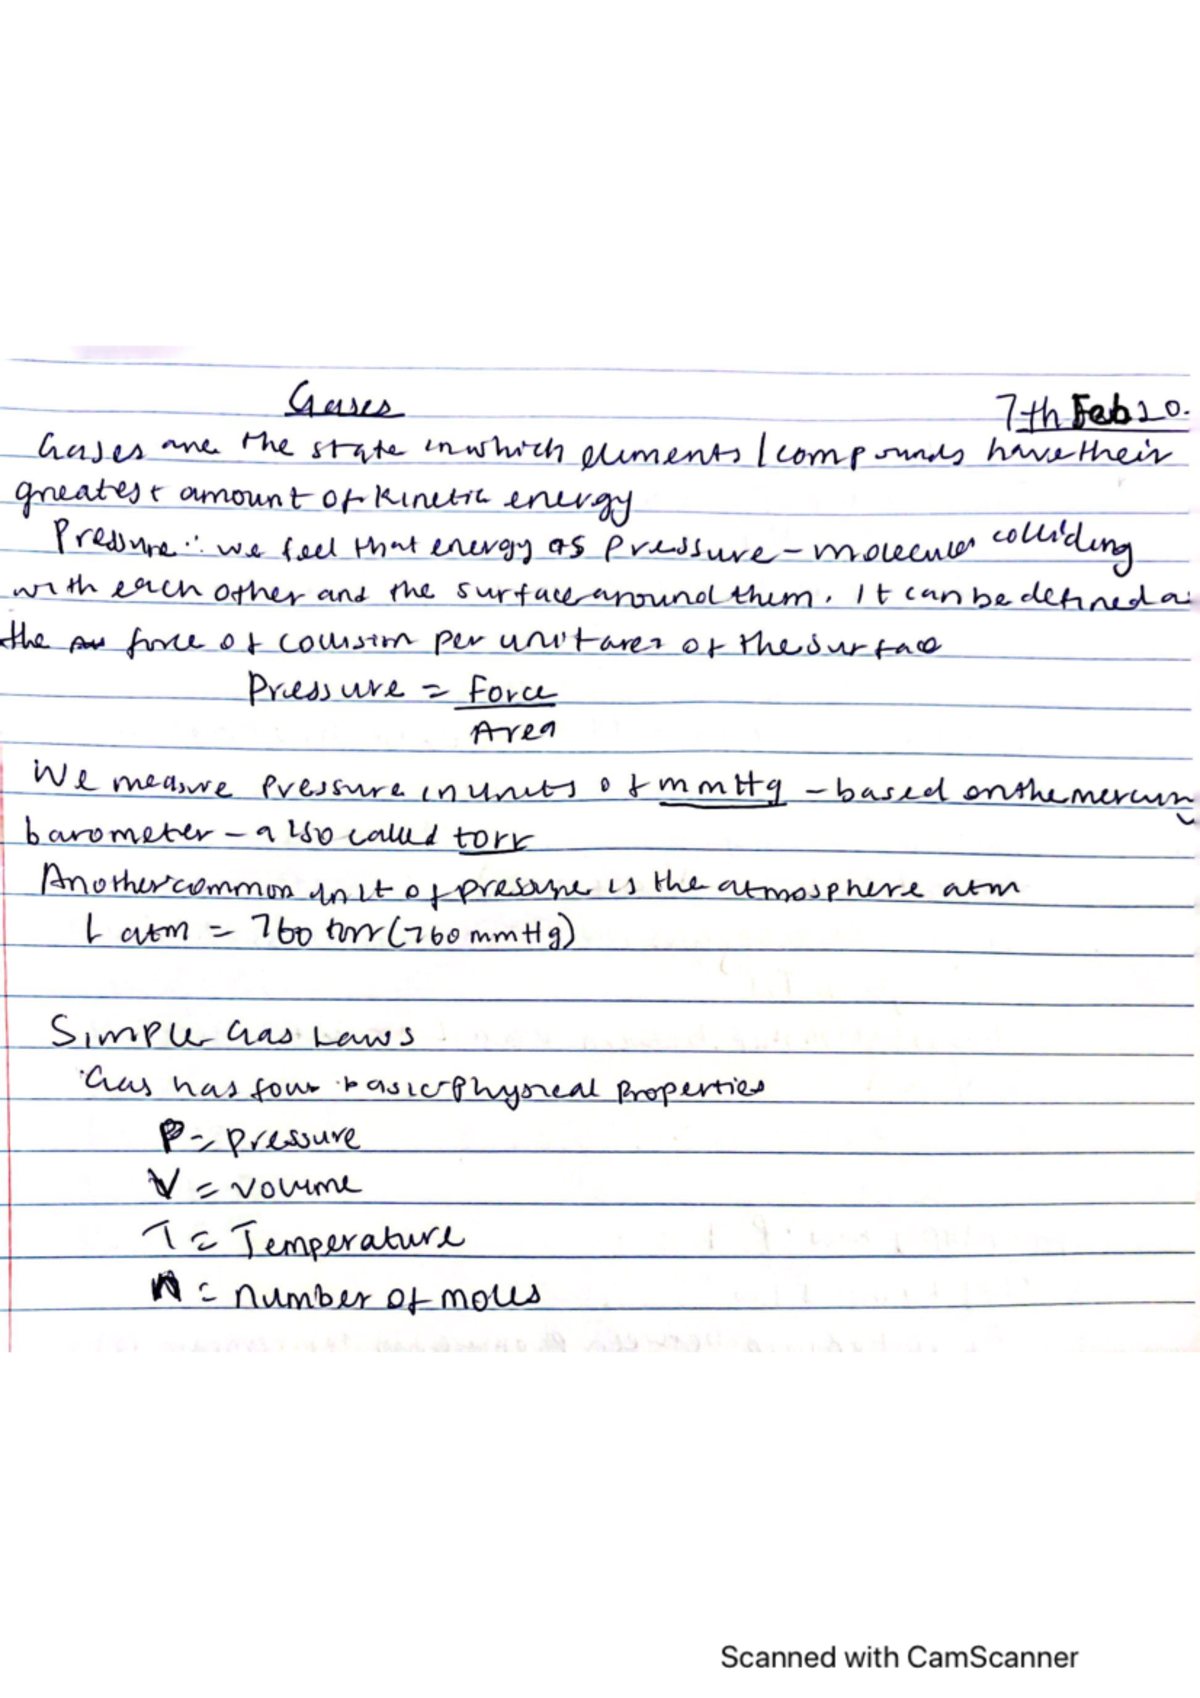 Gases
7th Feb 20.
Gases are the state in which elements / compounds have their
greatest amount of kinetic energy
Pressure: we feel that energy as pressure - molecules colliding
with each other and the surface around them. It can be defined as
the force of collision per unit area of the surface
Pressure = Force
Area
We measure pressure in units of mmHg - based on the mercury
barometer - also called torr
Another common unit of pressure is the atmosphere atm
1 atm = 760 torr (760 mmHg)
Simple Gas Laws
Gas has four basic physical properties
P = pressure
V = volume
T = Temperature
n = number of moles
Scanned with CamScanner